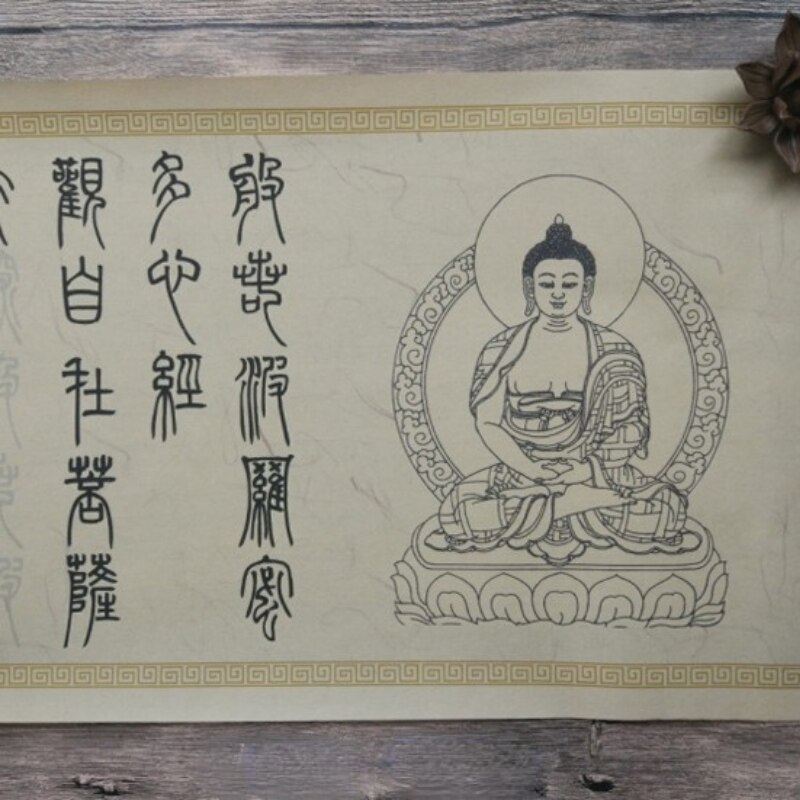 般若波羅蜜
多心經
觀自在菩薩